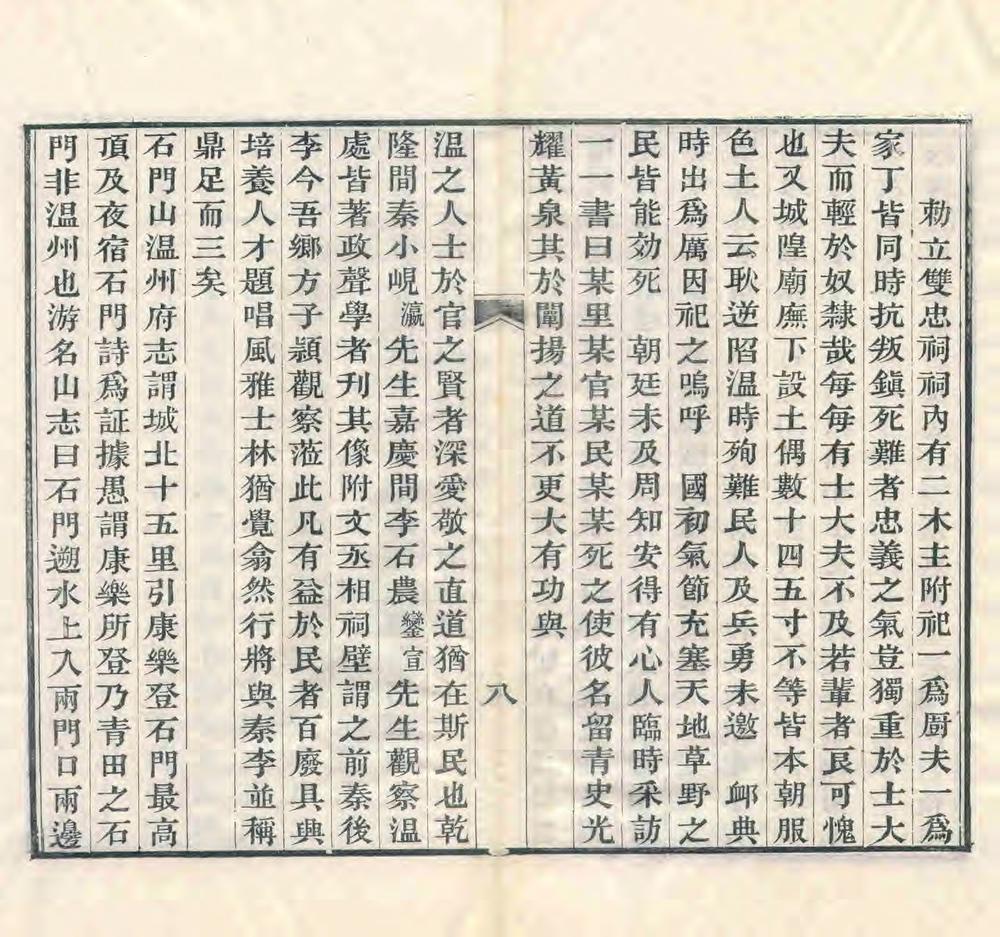 勅立雙忠祠祠內有二木主附祀一爲厨夫一爲
家丁皆同時抗叛鎭死難者忠義之氣豈獨重於士大
夫而輕於奴隸哉每每有士大夫不及若輩者艮可愧
也又城隍廟廡下設土偶數十四五寸不等皆本朝服
色土人云耿逆䧟温時殉難民人及兵勇未邀　䘏典
時出爲厲因祀之嗚呼　國初氣節充塞天地草野之
民皆能効死　朝廷未及周知安得有心人臨時采訪
一一書曰某里某官某民某某死之使彼名留青史光
耀黃泉其於闡揚之道不更大有功與
八
温之人士於官之賢者深愛敬之直道猶在斯民也乾
隆間秦小峴瀛先生嘉慶間李石農鑾宣先生觀察温
處皆著政聲學者刋其像附文丞相祠壁謂之前秦後
李今吾鄉方子頴觀察蒞此凡有益於民者百廢具興
培養人才題唱風雅士林猶覺翕然行將與秦李並稱
鼎足而三矣
石門山温州府志謂城北十五里引康樂登石門最高
頂及夜宿石門詩爲証據愚謂康樂所登乃青田之石
門非温州也游名山志曰石門遡水上入兩門口兩邊